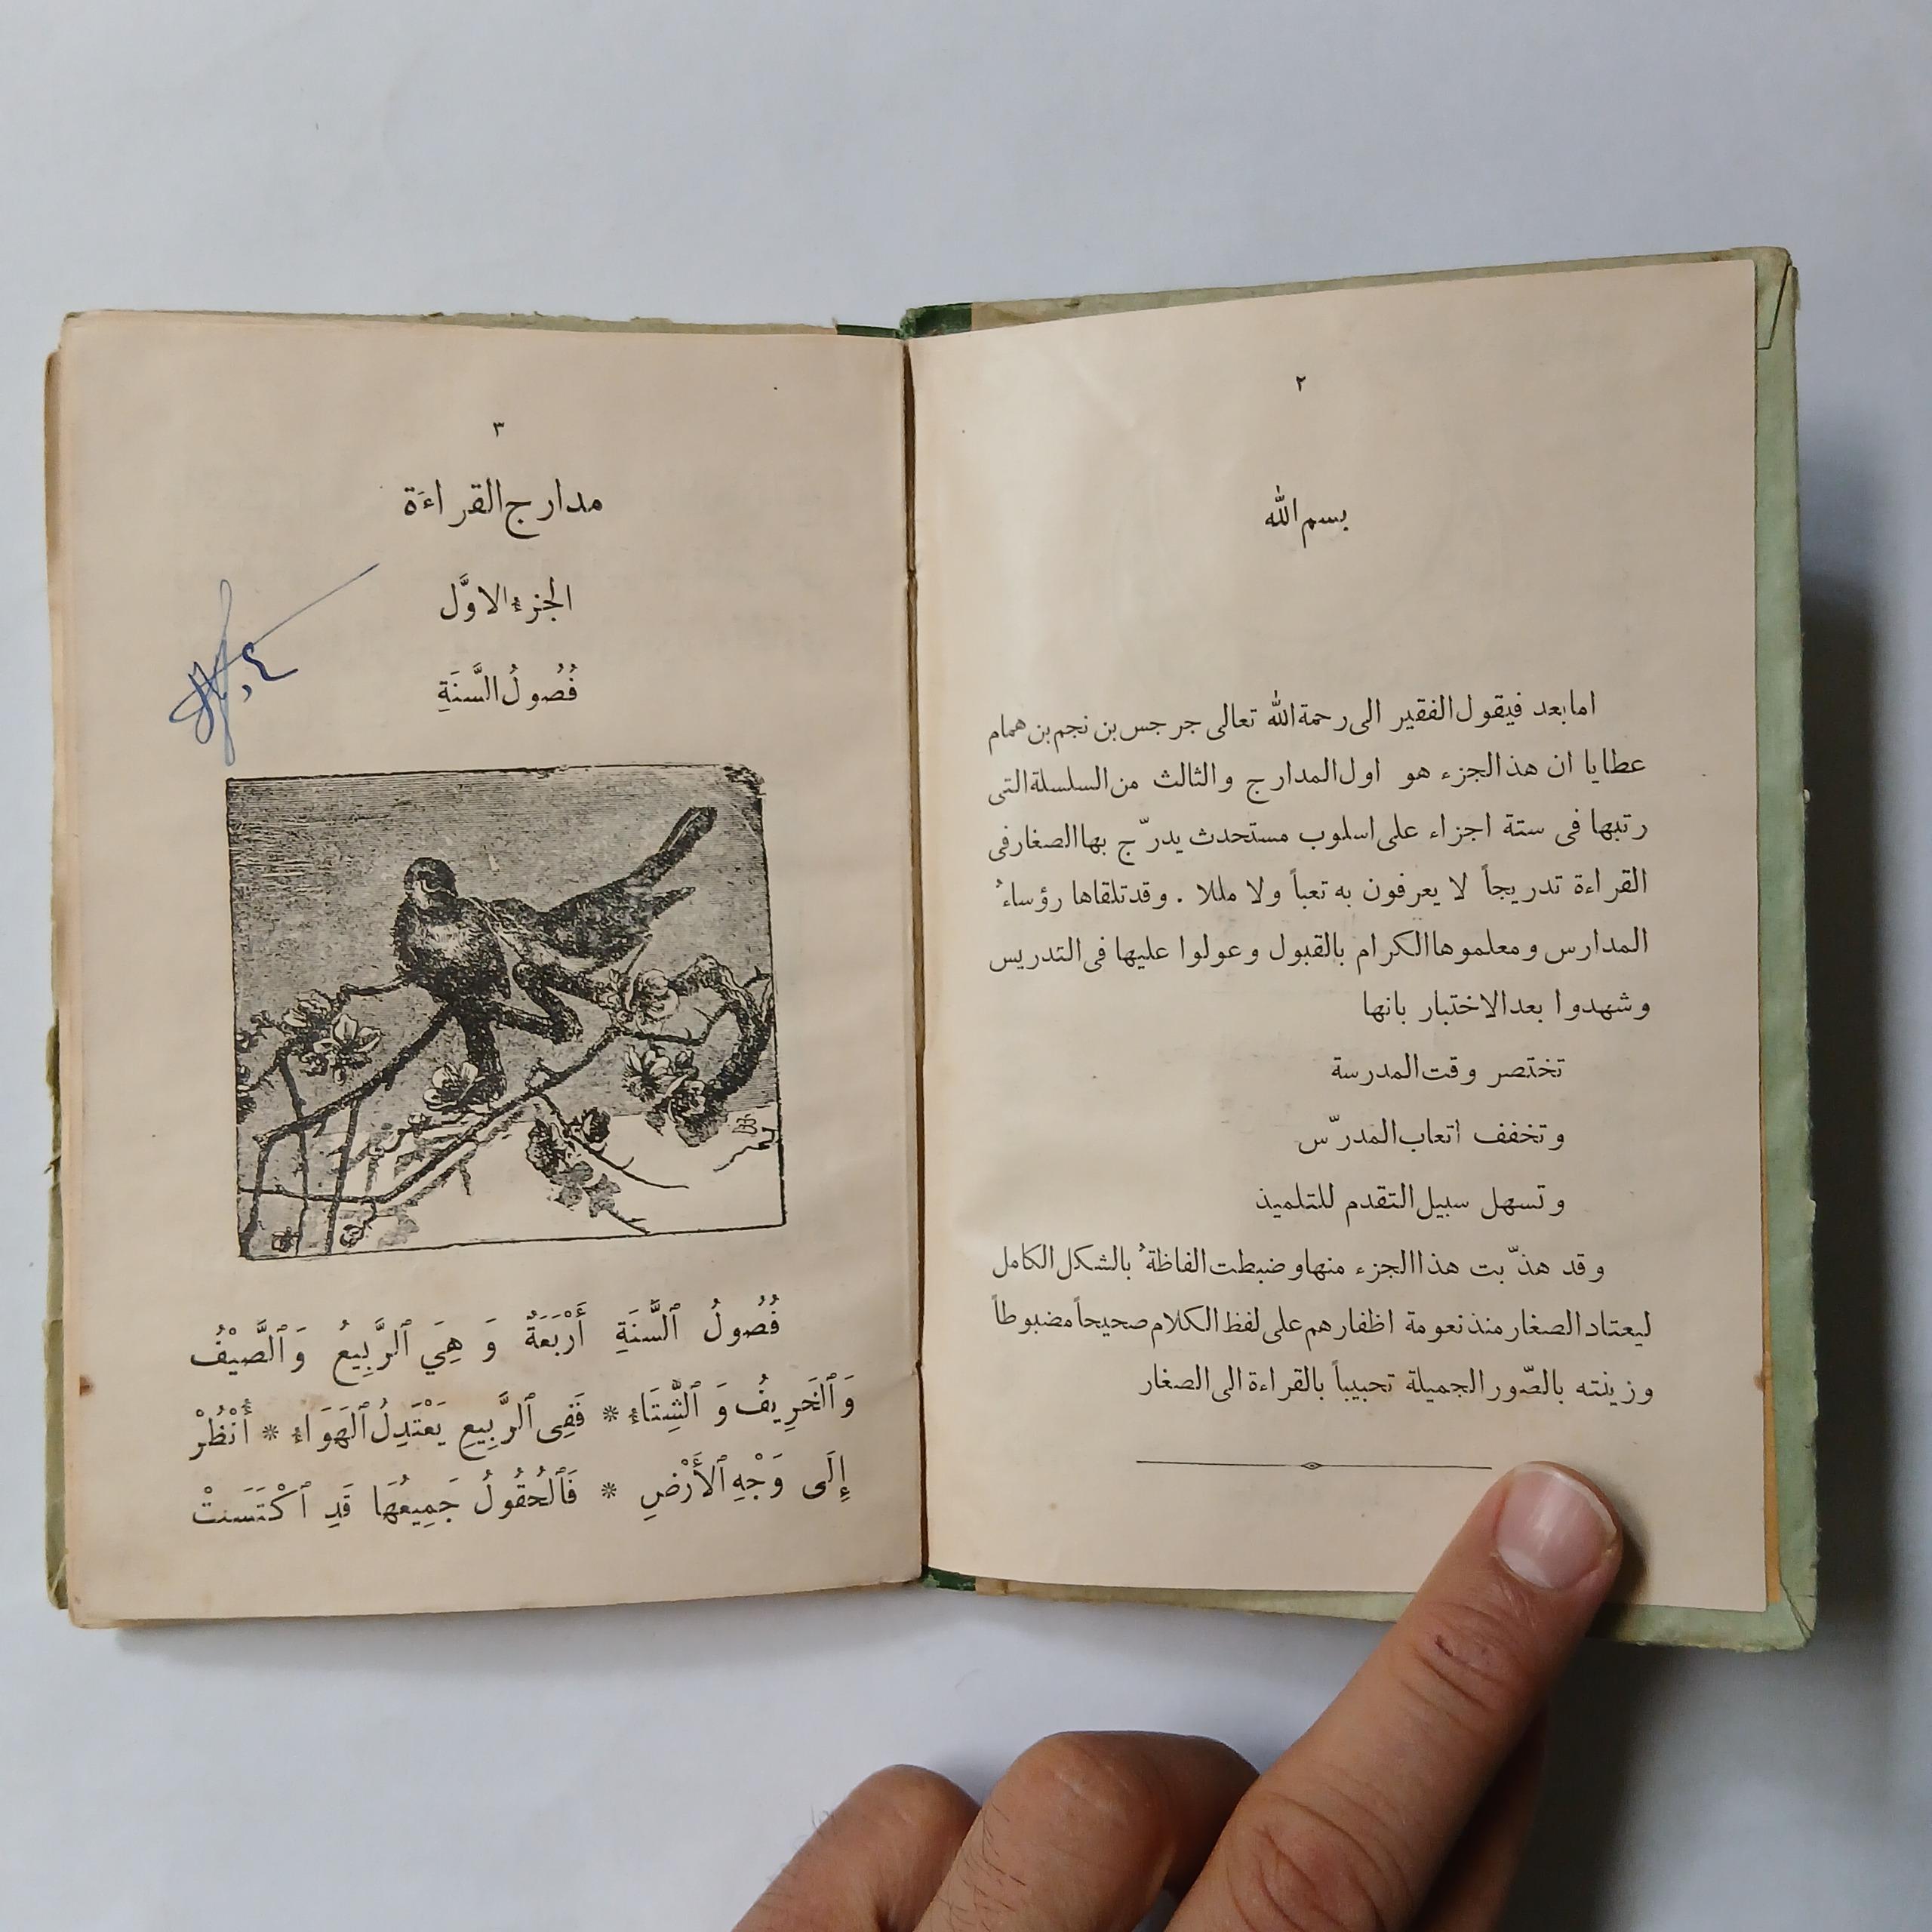 ٢
بسم الله
اما بعد فيقول الفقير الى رحمة الله تعالى جرجس بن نجم بن همام
عطايا ان هذا الجزء هو اول المدارج والثالث من السلسلة التى
رتبها فى ستة اجزاء على اسلوب مستحدث يدرّج بها الصغار فى
القراءة تدريجاً لا يعرفون به تعباً ولا مللا . وقد تلقاها رؤساءُ
المدارس ومعلموها الكرام بالقبول وعولوا عليها فى التدريس
وشهدوا بعد الاختبار بانها
تختصر وقت المدرسة
وتخفف اتعاب المدرّس
وتسهل سبيل التقدم للتلميذ
وقد هذّبت هذا الجزء منها وضبطت الفاظهُ بالشكل الكامل
ليعتاد الصغار منذ نعومة اظفارهم على لفظ الكلام صحيحاً مضبوطاً
وزينته بالصّور الجميلة تحبيباً بالقراءة الى الصغار
٣
مدارج القراءَة
الجزء الاوَّل
فُصُولُ السَّنَةِ
فُصُولُ ٱلسَّنَةِ أَرْبَعَةٌ وَ هِيَ ٱلرَّبِيعُ وَٱلصَّيْفُ
وَٱلخَرِيفُ وَ ٱلشِّتَاءُ * فَفِى ٱلرَّبِيعِ يَعْتَدِلُ ٱلهَوَاءُ * أُنْظُرْ
إِلَى وَجْهِ ٱلأَرْضِ * فَٱلحُقُولُ جَمِيعُهَا قَدِ ٱكْتَسَتْ